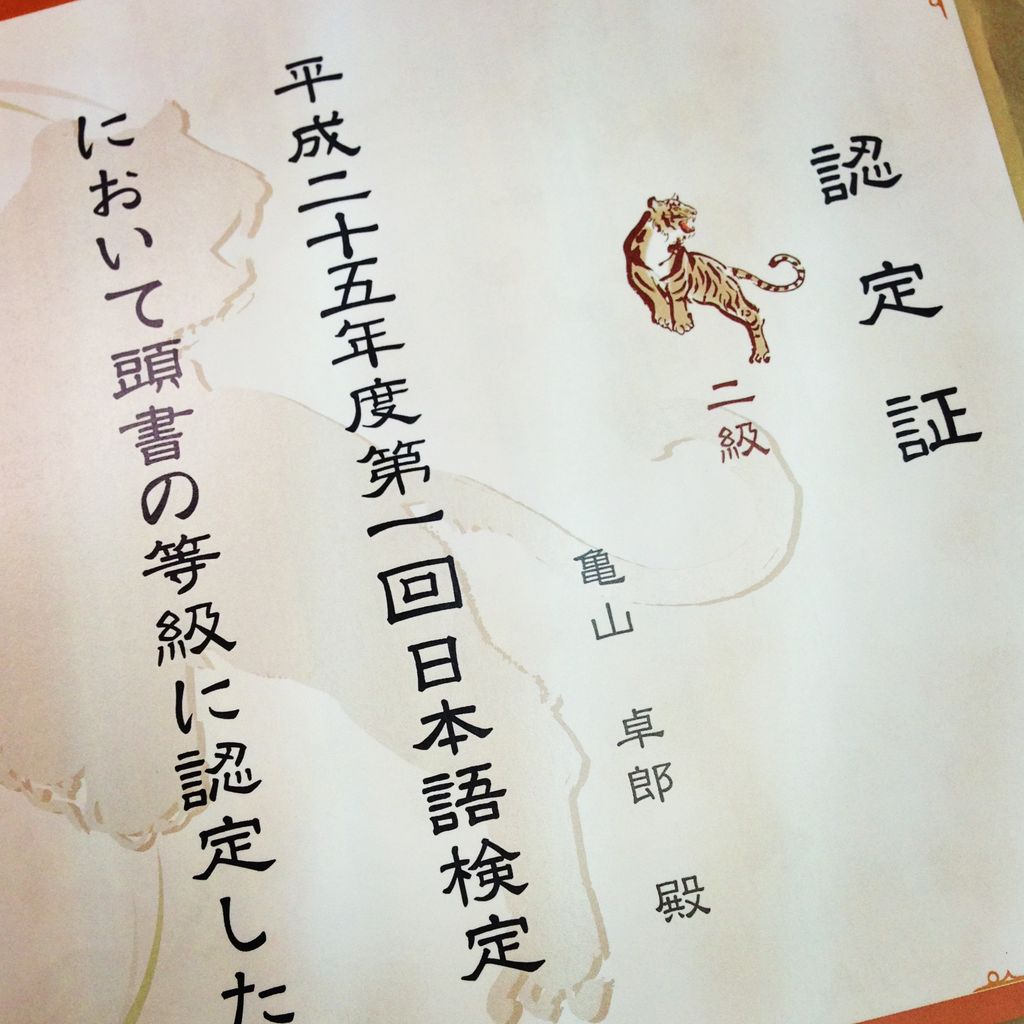 認定証
二級
亀山 卓郎 殿
平成二十五年度第一回日本語検定
において頭書の等級に認定した